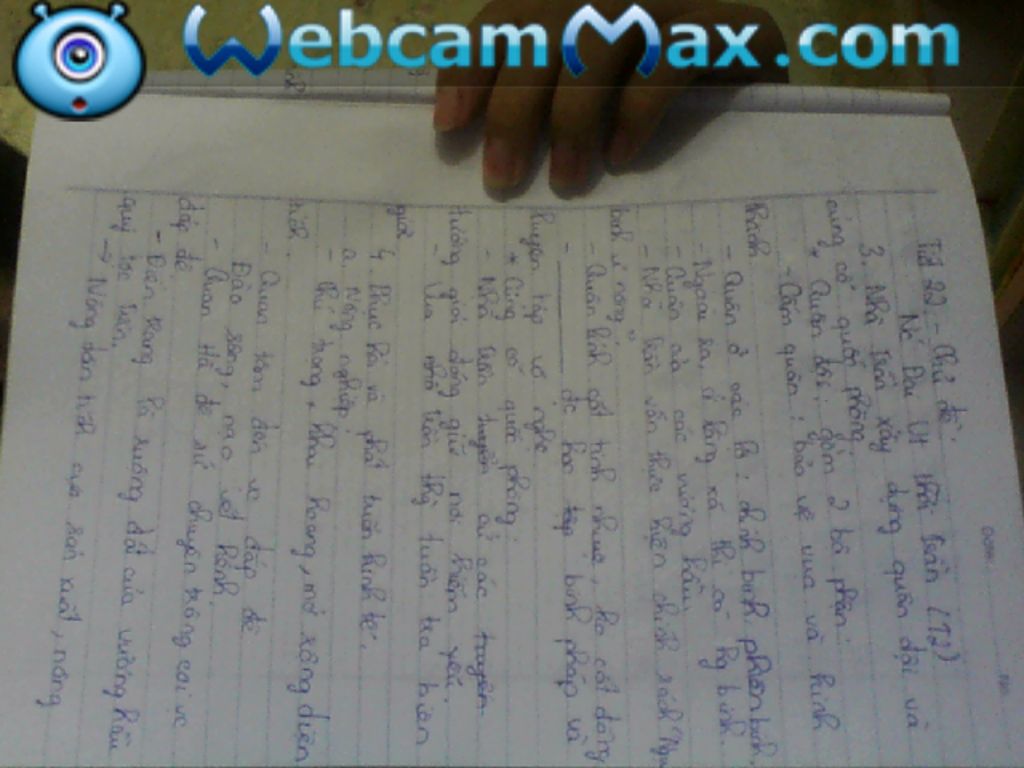 WebcamMax.com
Tiết 22 - Chủ đề:
Nc Đại Vt thời trần (T2)
3. Nhà trần xây dựng quân đội và
củng cố quốc phòng
* Quân đội: gồm 2 bộ phận:
- Cấm quân: bảo vệ vua và kinh
thành.
- Quân ở các lộ: chính binh, phiên binh,
- Ngoài ra, ở làng xã thì có hg binh.
- Quân của các vương hầu
- Nhà trần vẫn thực hiện chính sách "Ngụ
binh ư nông"
- Quân lính cốt tinh nhuệ, ko cốt đông
- đc học tập binh pháp và
luyện tập võ nghệ
* Củng cố quốc phòng:
- Nhà trần cử các
tướng giỏi đóng giữ nơi hiểm yếu.
- Vua trần thg tuần tra biên
giới
4. Phục hồi và phát triển kinh tế.
a. Nông nghiệp.
- Chú trọng, khai hoang, mở rộng diện
tích.
- Quan tâm đến vc đắp đê
Đào sông, nạo vét kênh.
- Quan Hà đê sứ chuyên trông coi vc
đắp đê
- Điền trang là ruộng đất của vương hầu
quý tộc trần.
→ Nông dân tích cực sản xuất, nông